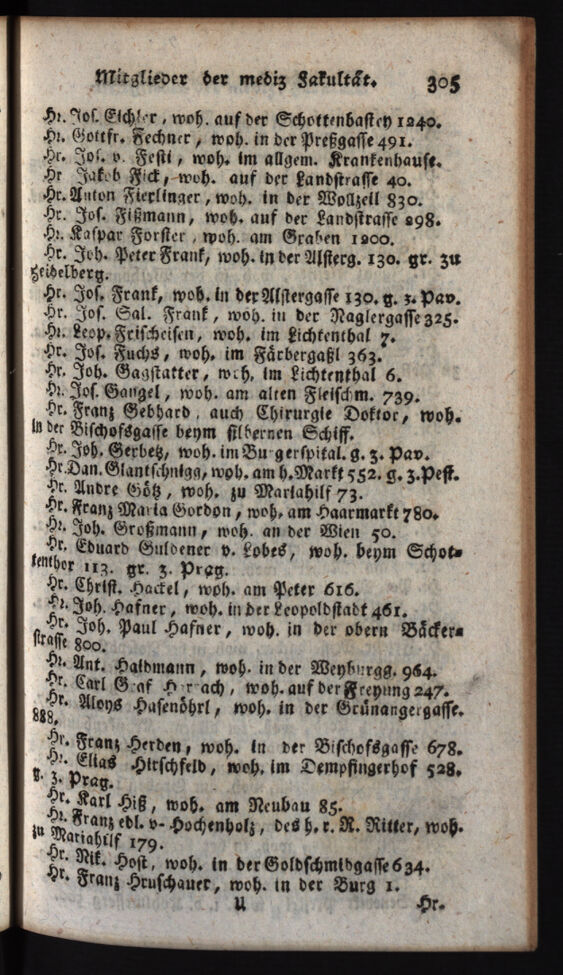 Mitglieder der mediz Fakultät. 305
Hr. Jos. Eichler, woh. auf der Schottenbastey 1240.
Hr. Gottfr. Fechner, woh. in der Preßgasse 491.
Hr. Jos. v. Festi, woh. im allgem. Krankenhause.
Hr Jakob Fick, woh. auf der Landstrasse 40.
Hr. Anton Fierlinger, woh. in der Wollzeil 830.
Hr. Jos. Fißmann, woh. auf der Landstrasse 298.
Hr. Kaspar Forster, woh. am Graben 1200.
Hr. Joh. Peter Frank, woh. in der Alsterg. 130. gr. zu
Heidelberg.
Hr. Jos. Frank, woh. in der Alstergasse 130. g. z. Pav.
Hr. Jos. Sal. Frank, woh. in der Naglergasse 325.
Hr. Leop. Frischeisen, woh. im Lichtenthal 7.
Hr. Jos. Fuchs, woh. im Färbergaßl 363.
Hr. Joh. Gagstatter, woh. im Lichtenthal 6.
Hr. Jos. Gangel, woh. am alten Fleischm. 739.
Hr. Franz Gebhard, auch Chirurgie Doktor, woh.
in der Bischofsgasse beym silbernen Schiff.
Hr. Joh. Gerbetz, woh. im Burgerspital. g. z. Pav.
Hr. Dan. Glantschnigg, woh. am h. Markt 552. g. z. Pest.
Hr. Andre Götz, woh. zu Mariahilf 73.
Hr. Franz Maria Gordon, woh. am Haarmarkt 780.
Hr. Joh. Großmann, woh. an der Wien 50.
Hr. Eduard Guldener v. Lobes, woh. beym Schot-
tenthor 113. gr. z. Prag.
Hr. Christ. Hackel, woh. am Peter 616.
Hr. Joh. Hafner, woh. in der Leopoldstadt 461.
Hr. Joh. Paul Hafner, woh. in der obern Bäcker-
strasse 800.
Hr. Ant. Haidmann, woh. in der Weyburgg. 964.
Hr. Carl Graf Harrach, woh. auf der Freyung 247.
Hr. Aloys Hasenöhrl, woh. in der Grünangergasse.
888.
Hr. Franz Herden, woh. in der Bischofsgasse 678.
Hr. Elias Hirschfeld, woh. im Dempfingerhof 528.
g. z. Prag.
Hr. Karl Hiß, woh. am Neubau 85.
Hr. Franz edl. v. Hochenholz, des h. r. R. Ritter, woh.
zu Mariahilf 179.
Hr. Nik. Host, woh. in der Goldschmidgasse 634.
Hr. Franz Hruschauer, woh. in der Burg 1.
U Hr.